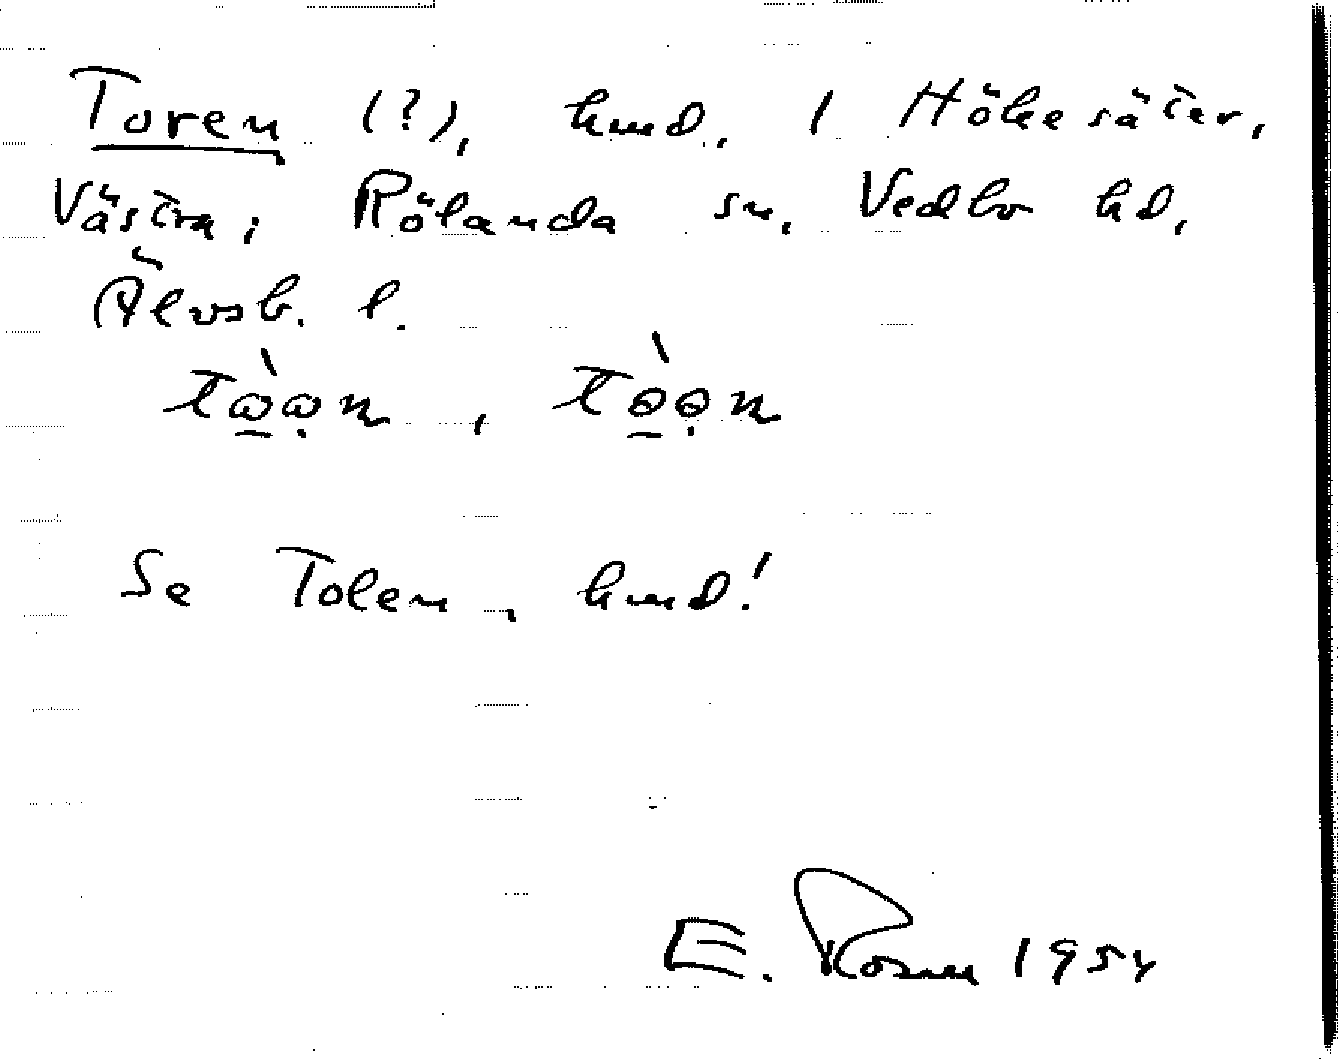 Toren (?), hmd. / Hökesäter,
Västra, Rölanda sn, Vedbo hd,
Älvsb. l.
Se Tolen, hmd!
E. Rosen 1954